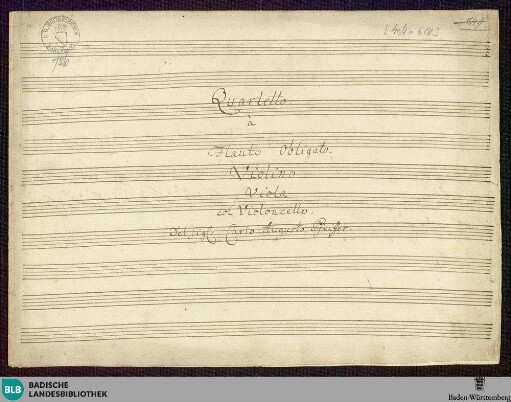 726
Quartetto
à
Flauto Obligato.
Violino
Viola
col Violoncello.
Del Sigl. Carlo Augusto Pfeiffer.
BLB
BADISCHE
LANDESBIBLIOTHEK
Baden-Württemberg